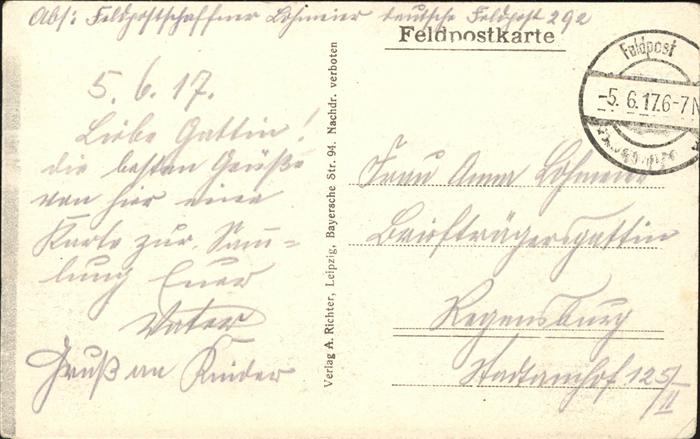 Abs: Feldpostschaffner Lohmeier deutsche Feldpost 292
Feldpostkarte
Feldpost
-5. 6.17.6-7N
5. 6. 17.
Liebe Gattin!
die besten Grüße
von hier eine
Karte zur Samm=
lung Euer
Vater
Gruß an Kinder
Verlag A. Richter, Leipzig, Bayersche Str. 94. Nachdr. verboten
Frau Anna Lohmeier
Briefträgersgattin
Regensburg
Stadtamhof 125/
II